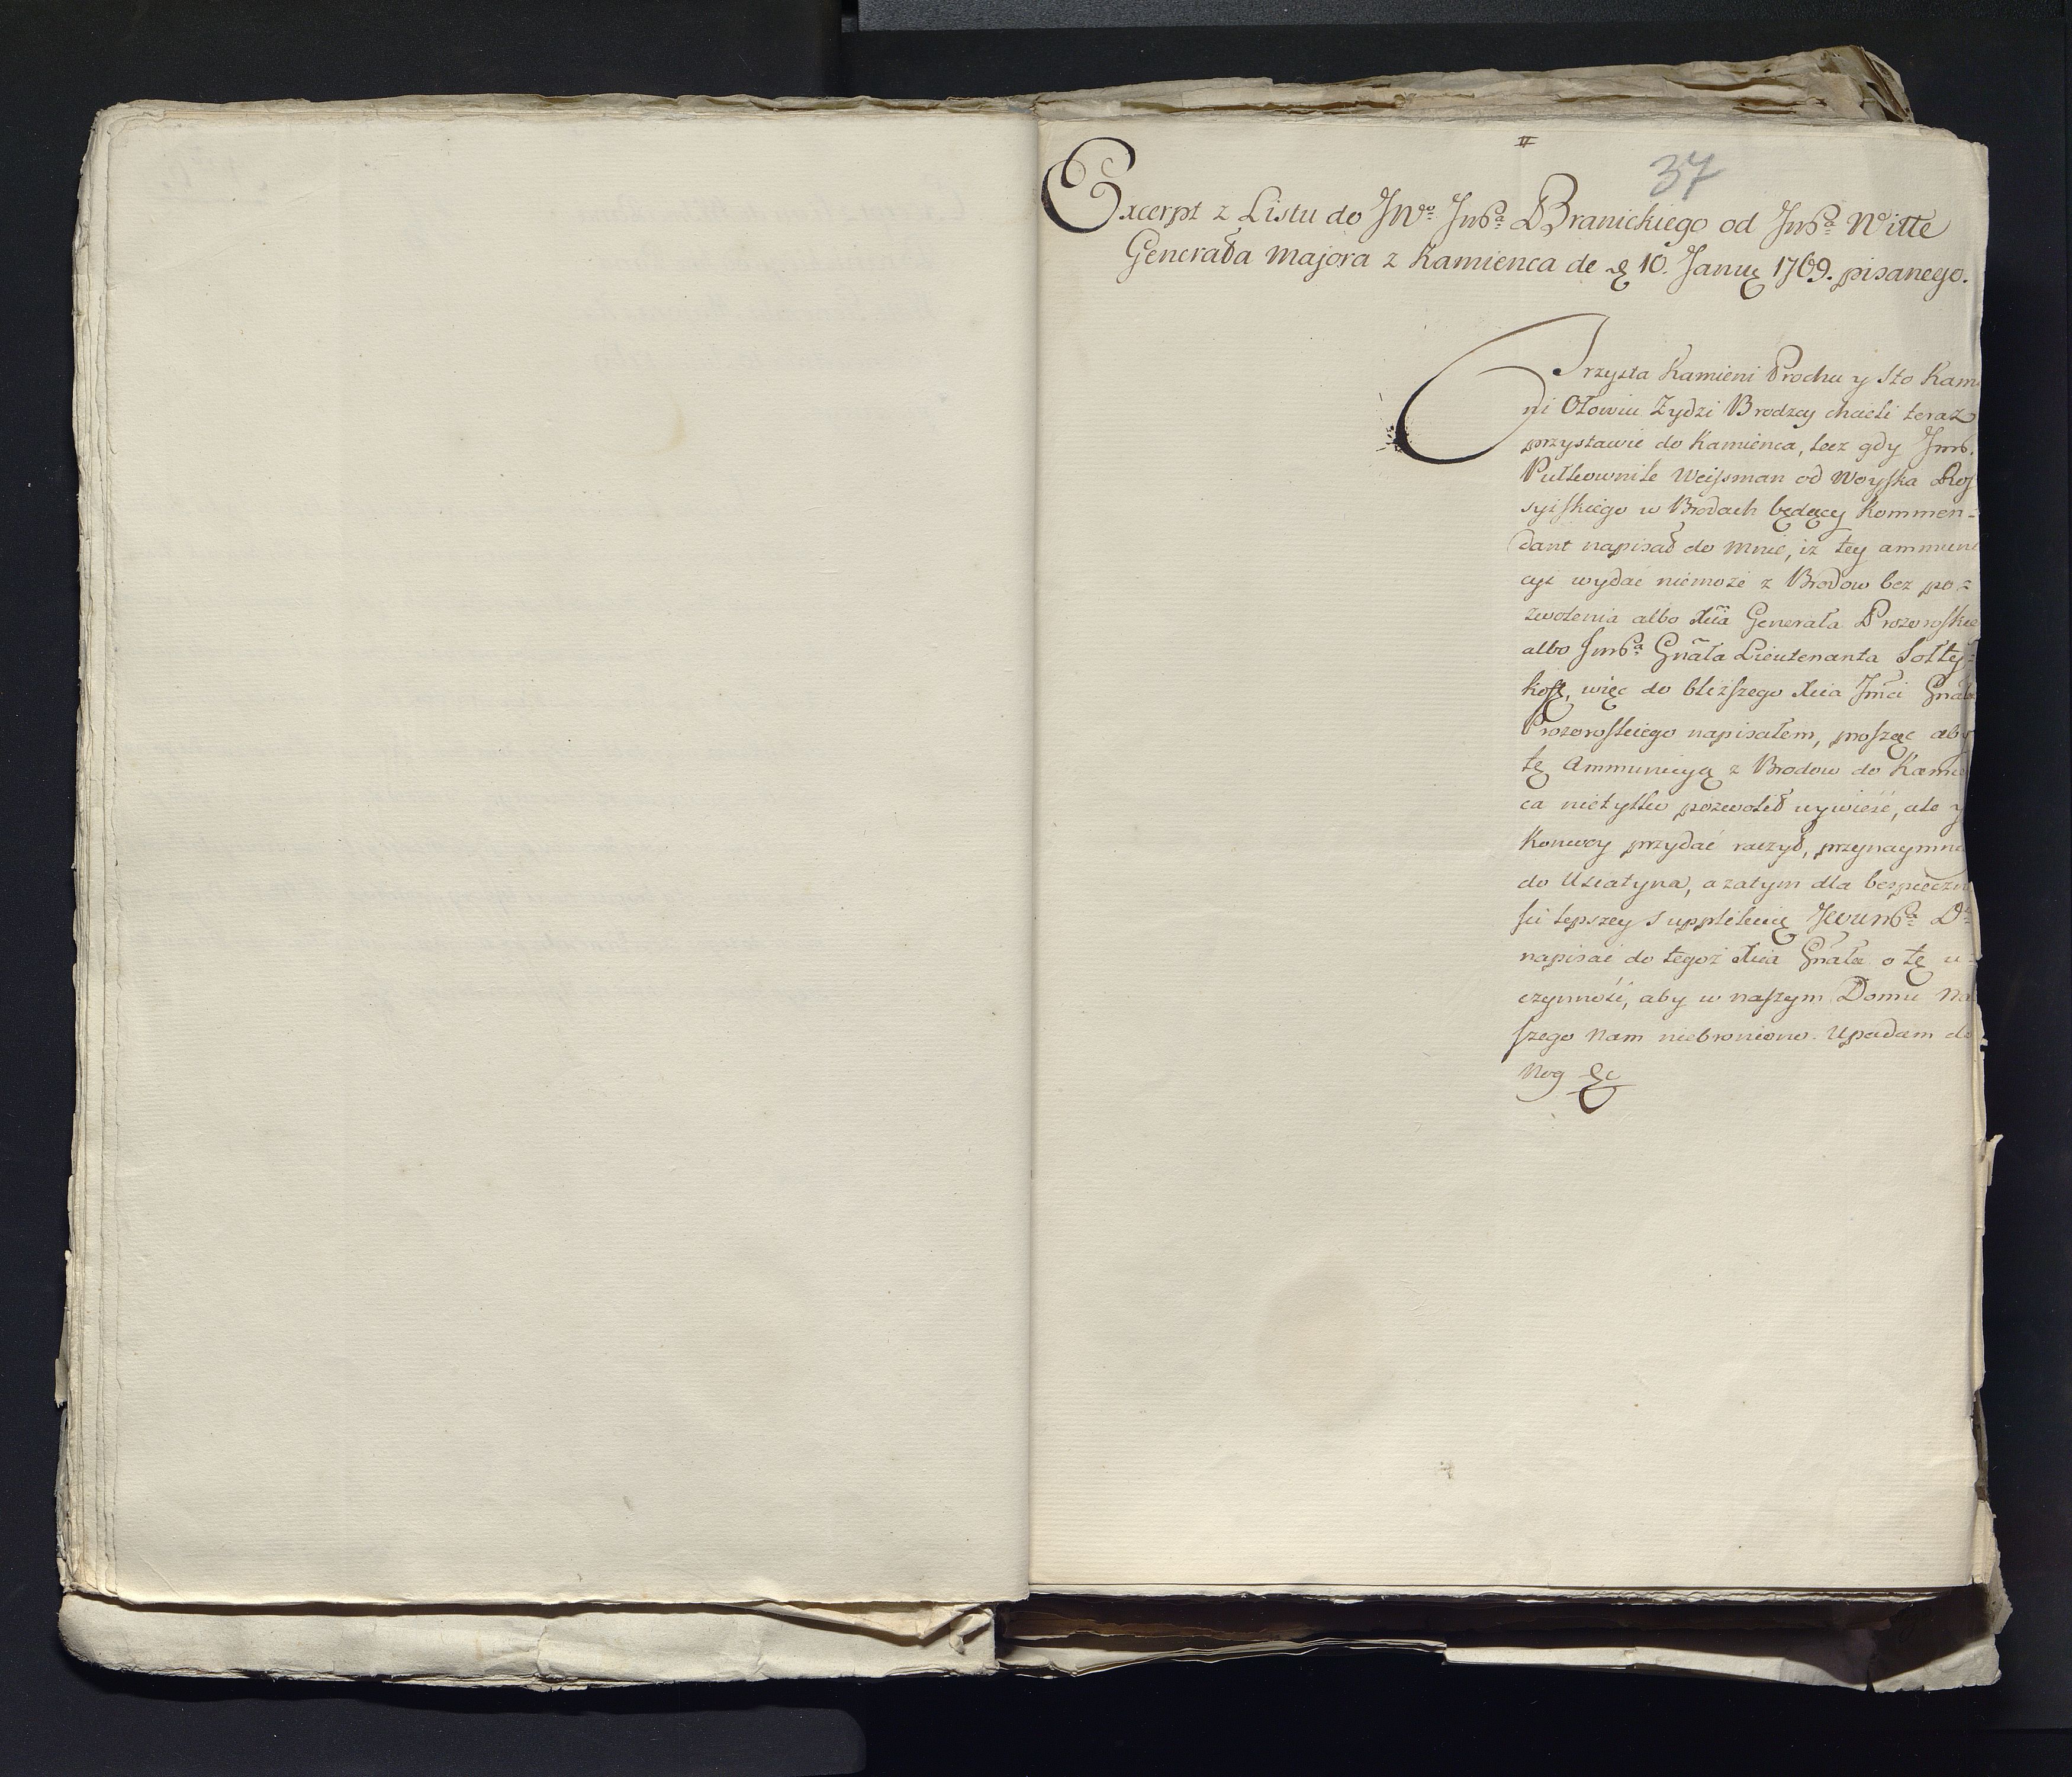 37
Excerpt z Listu do JWo JmPa Branickiego od JmPa Witte
Generała Majora z Kamienca de 10. Janu 1769. pisanego.
Trzysta Kamieni Prochu y Sto Kami
ni Ołowiu Zydzi Brodzcy chcieli teraz
przystawic do Kamienca, lecz gdy JmP.
Pułkownik Weissman od Woyska Ros
syiskiego w Brodach będący Kommen=
dant napisał do mnie, iz tey ammuni
cyi wydac niemoze z Brodow bez po=
zwolenia albo Xcia Generała Prozoroskie
albo JmPa Gnała Lieutenanta Sołty=
ko, więc do blizszego Xcia Jmci Gnała
Prozoroskiego napisałem, prosząc aby
tę Ammunicyą z Brodow do Kamie
ca nietylko pozwolił wywieść, ale y
Konwoy przydać raczył, przynaymni
do Usiatyna, a zatym dla bespieczno
sci lepszey supplikuię JWWmPa D
napisać do tegoż Xcia Gnała o tę u=
czynność, aby w naszym Domu na
szego Nam niebroniono. Upadam do
Nog &c